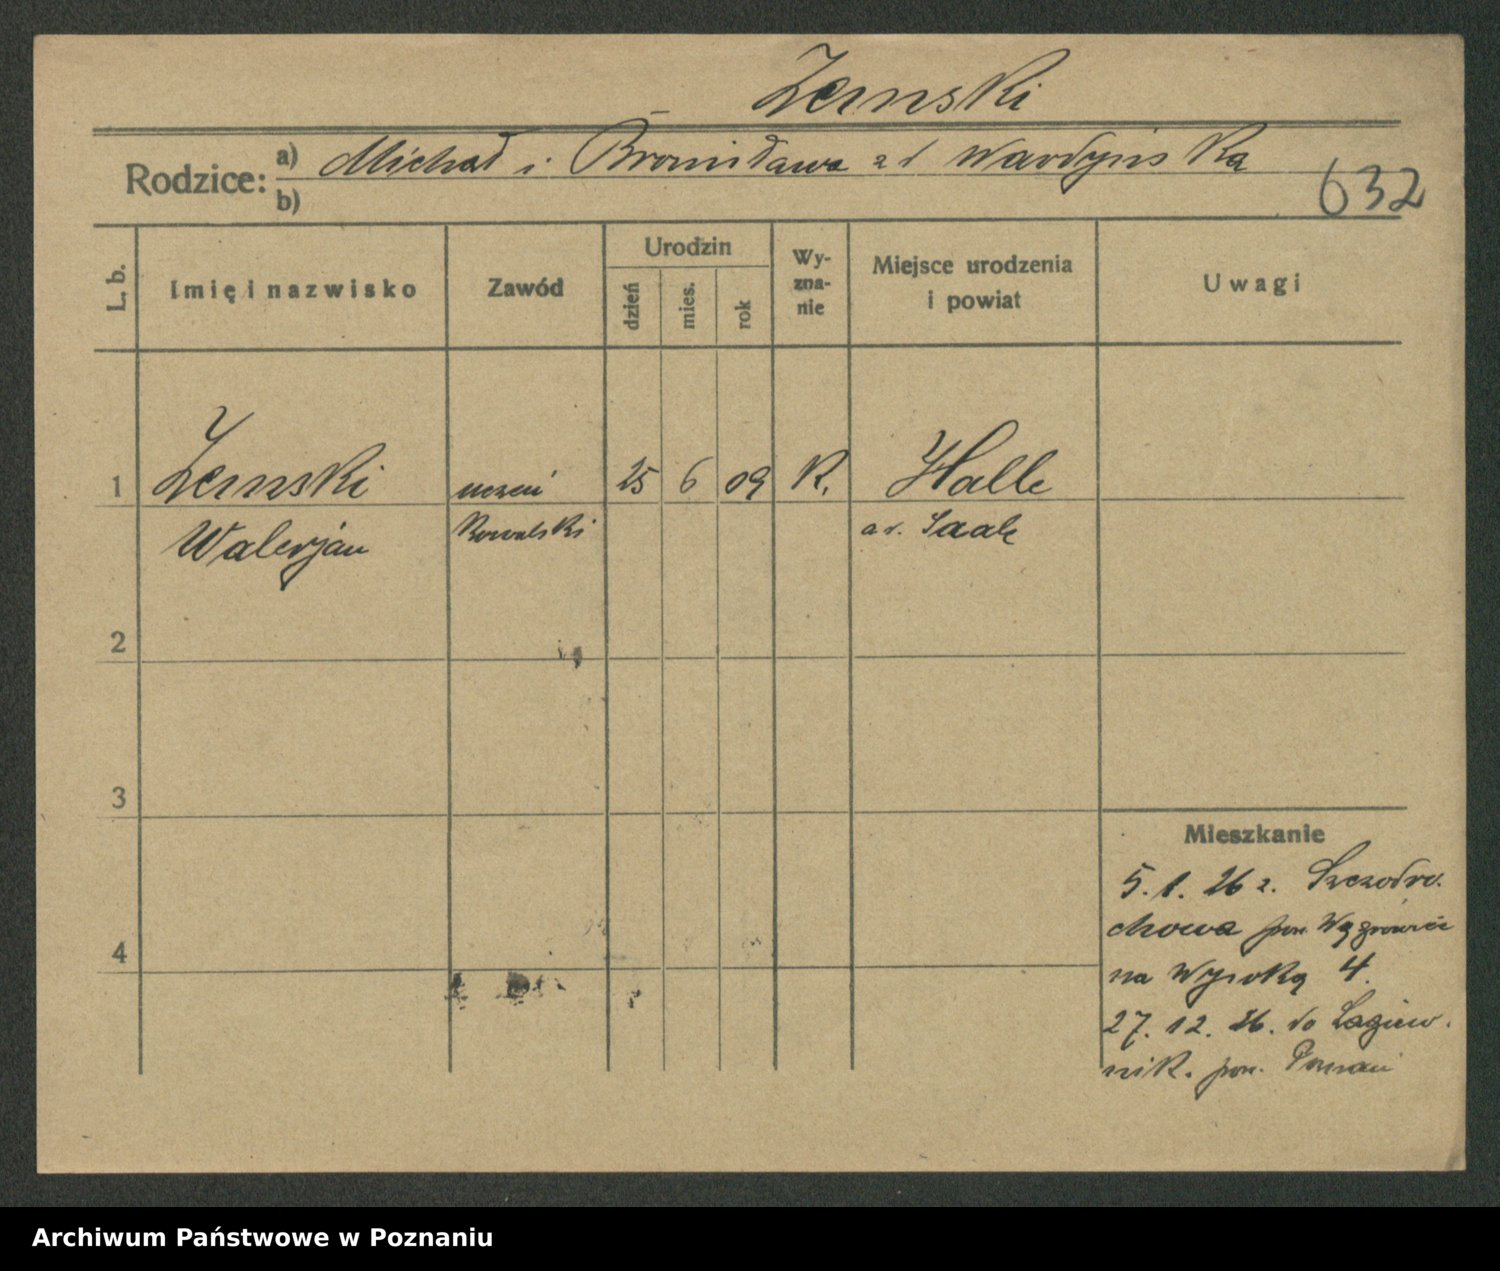 Zemski
Rodzice: a) Michał i Bronisława z d Wardyńska
b)
632
L. b.
Imię i nazwisko
Zawód
Urodzin
dzień
mies.
rok
Wy-
zna-
nie
Miejsce urodzenia
i powiat
Uwagi
1 Zemski uczeń 25 6 09 R. Halle
Walerjan Kowalski a. Saale
2
3
4
Mieszkanie
5. 1. 26 z. Szczodro.
chowa pow. Wągrowiec
na Wysoką 4.
27. 12. 26. do Łagiew.
nik. pow. Poznań
Archiwum Państwowe w Poznaniu